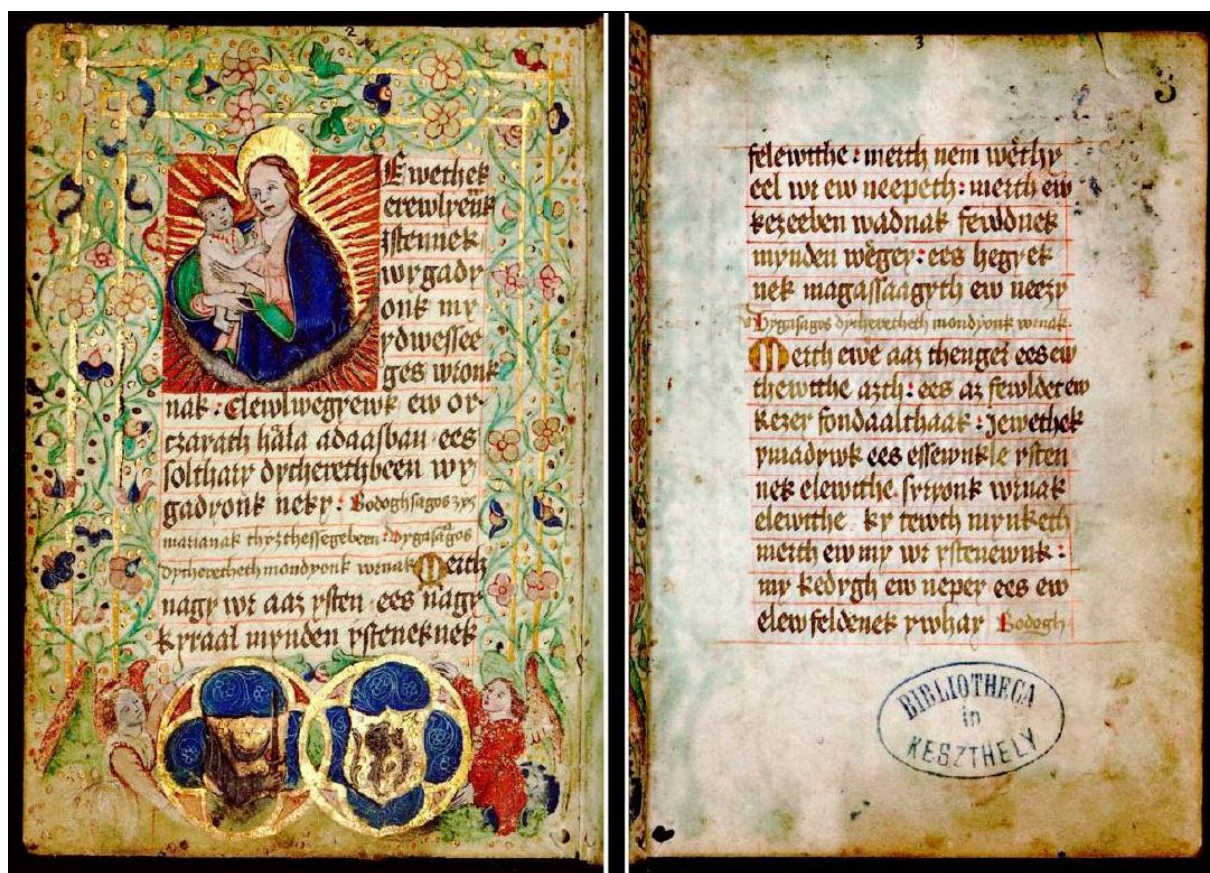 2
Ewethek
erewlyenk
ystennek
wygady
onk my
ydwessee
ges wronk
nak : Elewlwegyewk ew or-
czarath hàla adaasban ees
solthary dycherethbeen wy
gadyonk neky : Bodoghsagos zyz
marianak thyzthessegebeen : Vygasagos
dycheretheth mondyonk wrnak Merth
nagy wr aaz ysten ees nagy
kyraal mynden ysteneknek
3
3
felewtthe : merth nem wethy
eel wr ew neepeth : merth ew
kezeeben wadnak fewldnek
mynden wegey : ees hegyek
nek magassaagyth ew neezy
Vygasagos dycheretheth mondyonk wrnak.
Merth ewe aaz thenger ees ew
thewtthe azth : ees az fewldet ew
kezey fondaalthaak : Jewethek
ymadywk ees essewnk le ysten
nek elewtthe. syryonk wrnak
elewtthe ky tewth mynketh
merth ew my wr ystenewnk :
my kedygh ew nepey ees ew
elewfeldenek ywhay Bodogh
BIBLIOTHECA
in
KESZTHELY